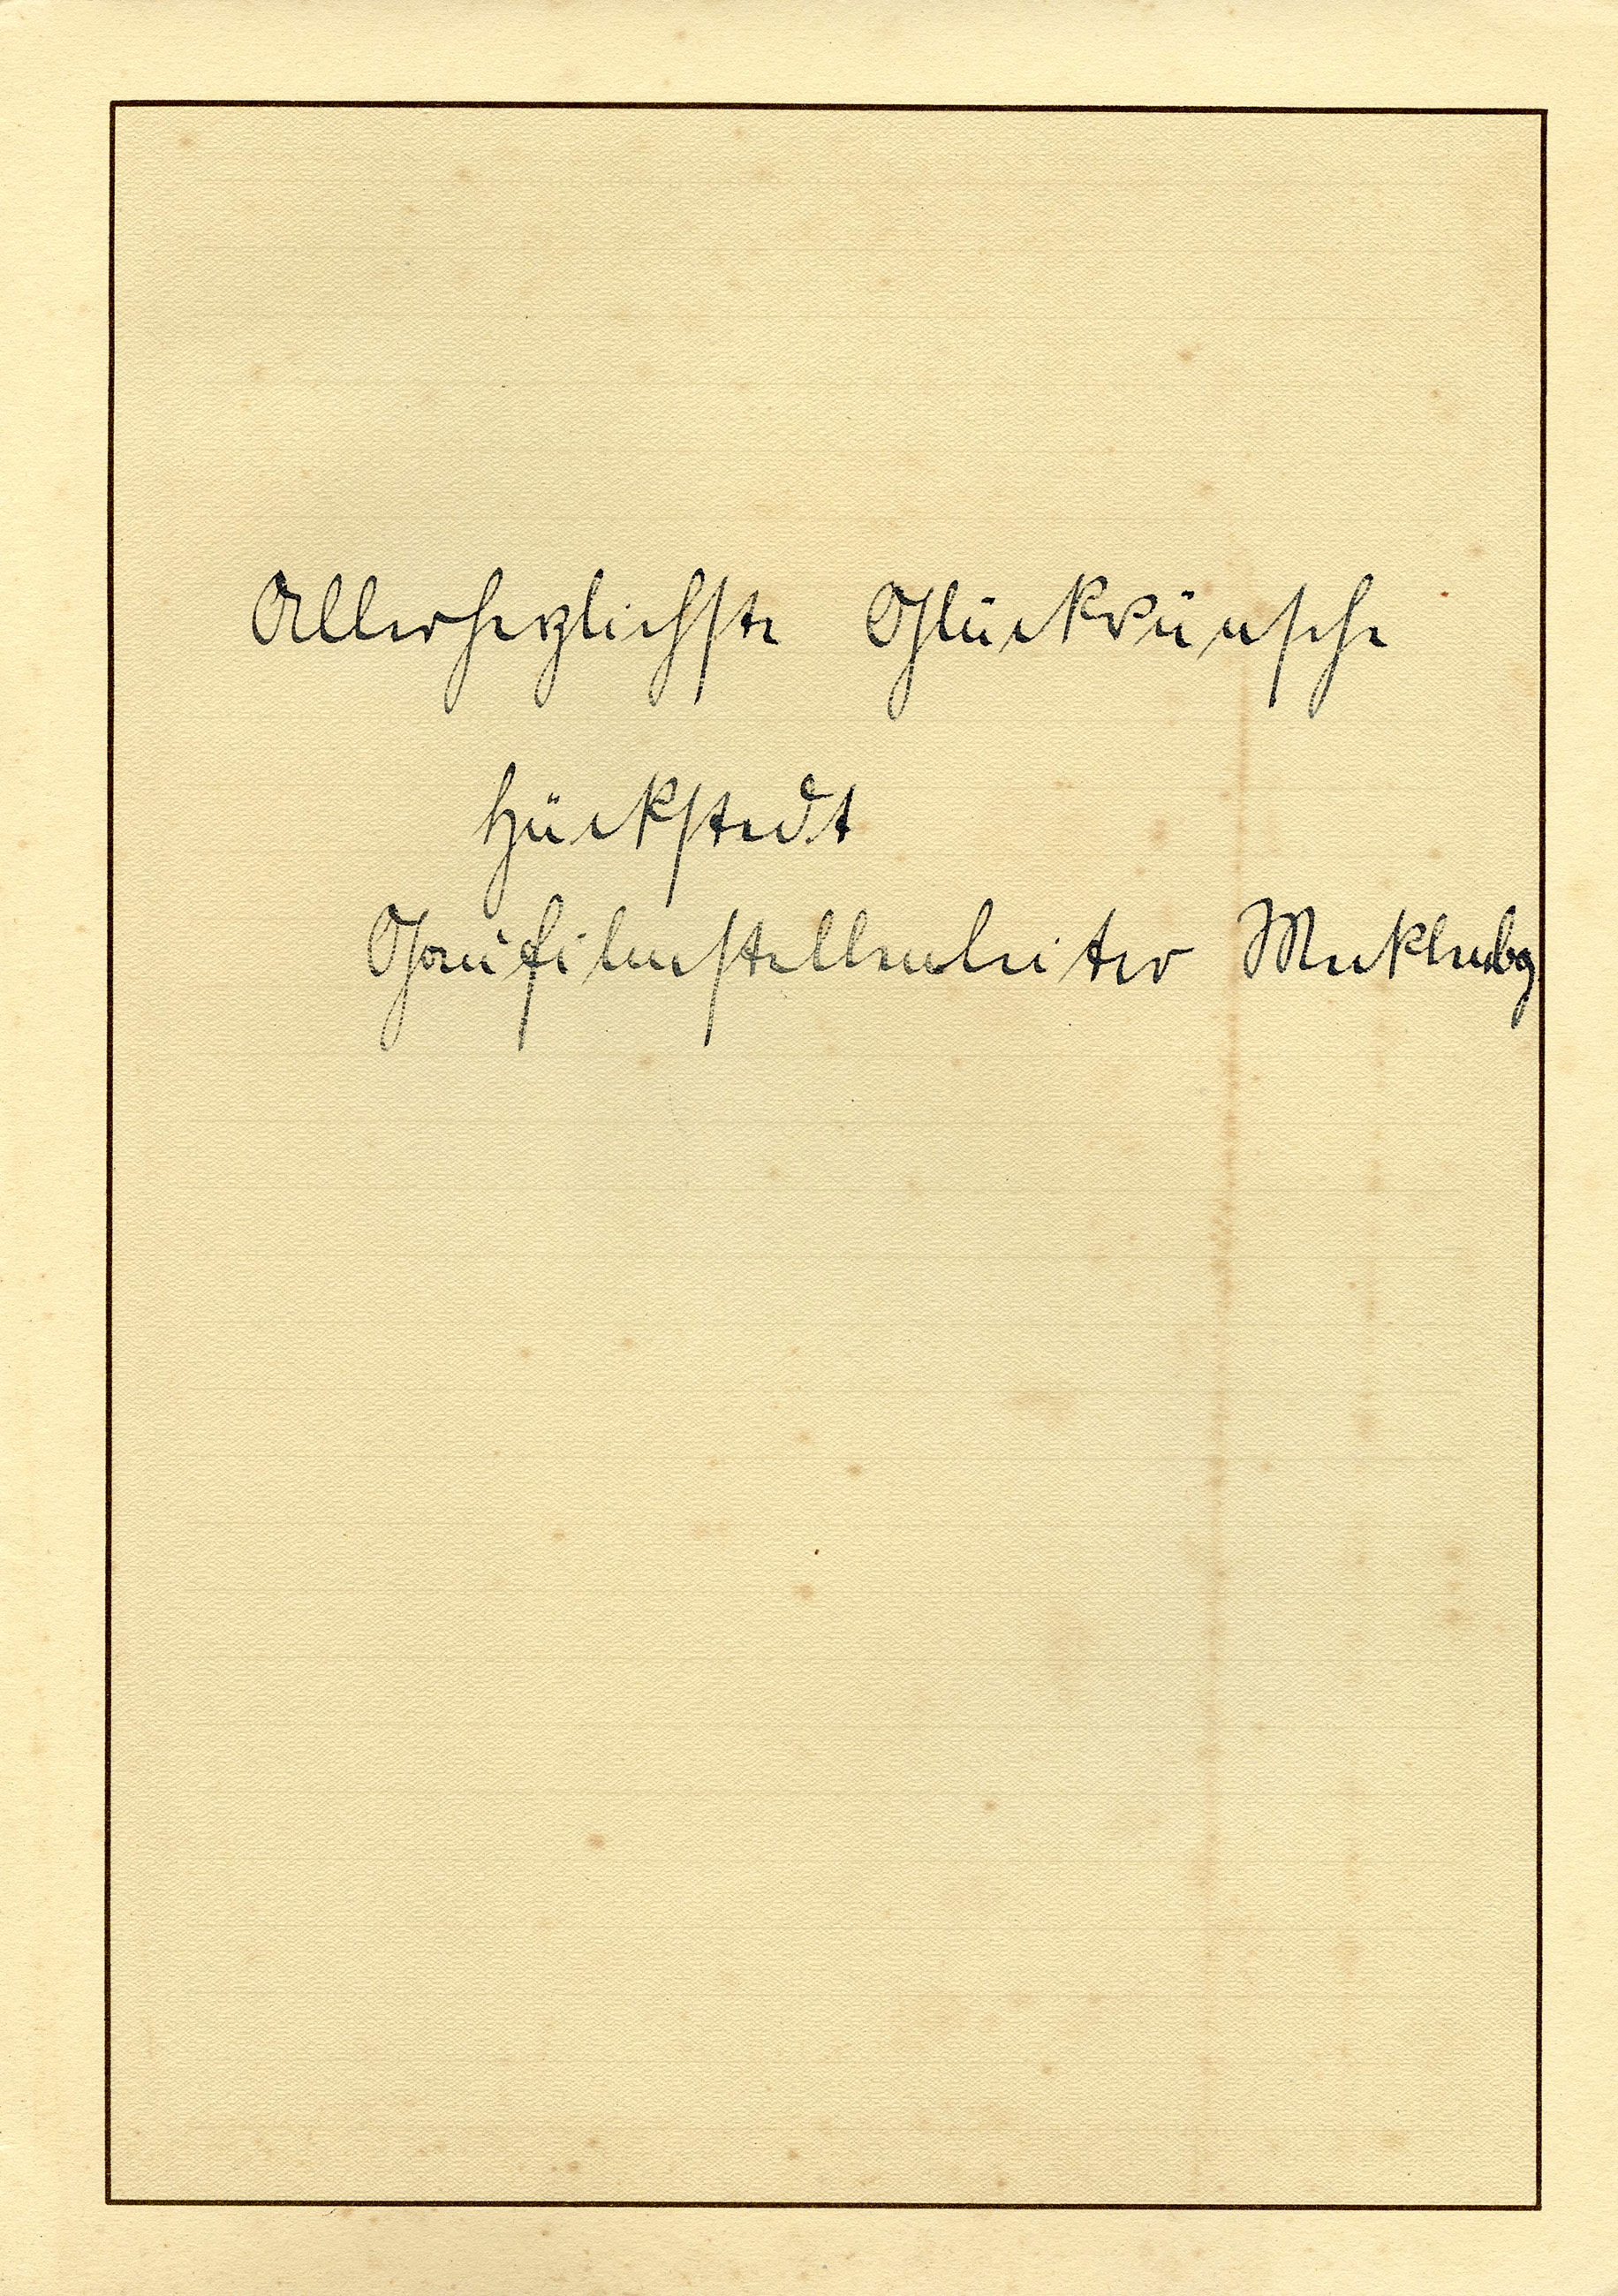 Allerherzlichste Glückwünsche
Hückstedt
Gaufilmstellenleiter Mecklenbg